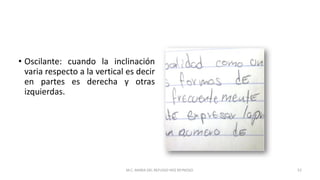 • Oscilante: cuando la inclinación
varia respecto a la vertical es decir
en partes es derecha y otras
izquierdas.
alidad como un
s formas DE
frecuentemente
te expresar
un numero de
M.C. MARIA DEL REFUGIO